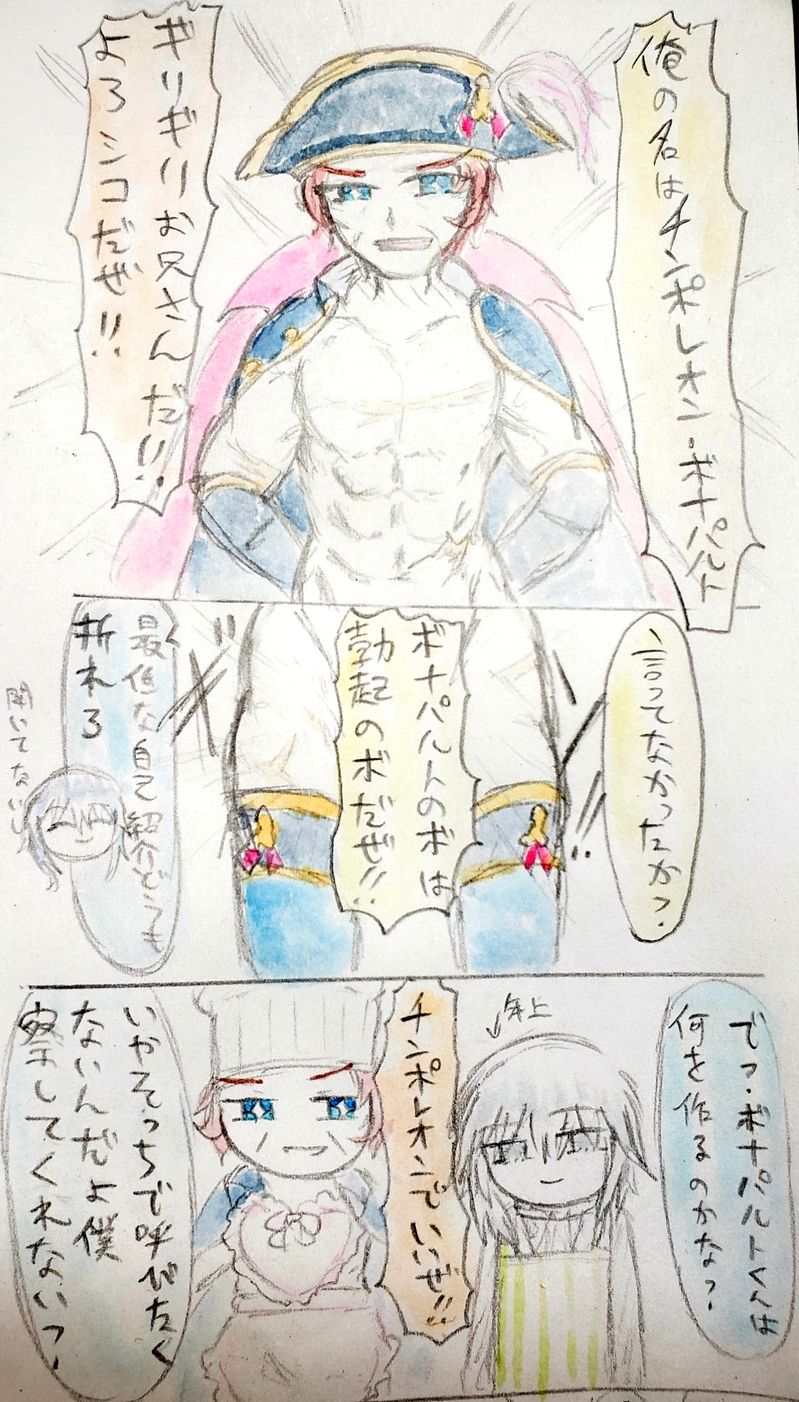 俺の名はチンポレオン・ボナパルト
ギリギリお兄さんだ!!
よろシコだぜ!!
言ってなかったか?
ボナパルトのボは
勃起のボだぜ!!
最低な自己紹介どうも
折れろ
聞いてないし
でっ・ボナパルトくんは
何を作るのかな?
年上
チンポレオンでいいぜ!!
いやそっちで呼びたく
ないんだよ僕
察してくれない?